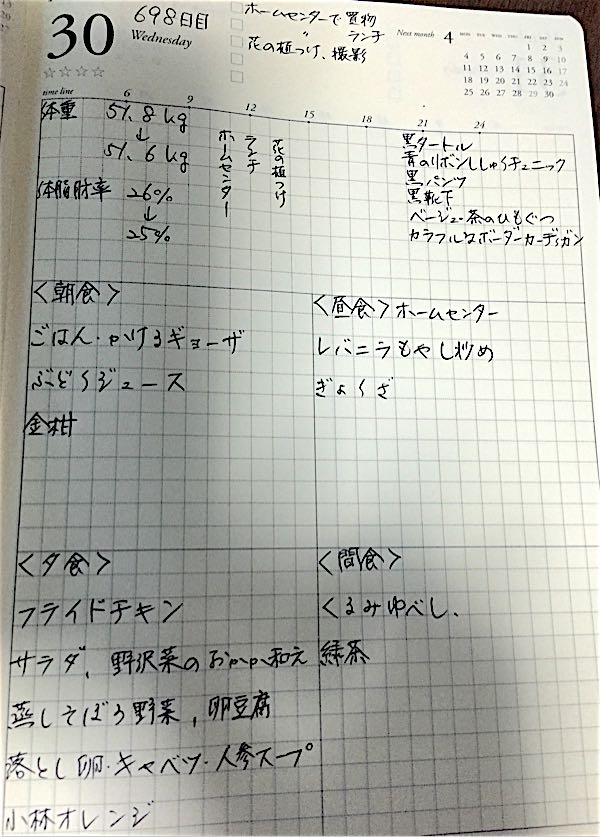 30
Wednesday
☆☆☆☆
698日目
ホームセンターで買物
〃 ランチ
花の植つけ、撮影
Next month 4
MON TUE WED THU FRI SAT SUN
1 2 3
4 5 6 7 8 9 10
11 12 13 14 15 16 17
18 19 20 21 22 23 24
25 26 27 28 29 30
time line 6 9 12 15 18 21 24
体重 51.8kg
↓
51.6kg
体脂肪率 26%
↓
25%
ホームセンター
ランチ
花の植つけ
黒タートル
青のリボンししゅうチュニック
黒パンツ
黒靴下
ベージュ・茶のひもぐつ
カラフルなボーダーカーディガン
<朝食>
ごはん・かけるギョーザ
ぶどうジュース
金柑
<昼食>ホームセンター
レバニラもやし炒め
ぎょうざ
<夕食>
フライドチキン
サラダ、野沢菜のおかか和え
蒸しそぼろ野菜、卵豆腐
落とし卵・キャベツ・人参スープ
小林オレンジ
<間食>
くるみゆべし、
緑茶